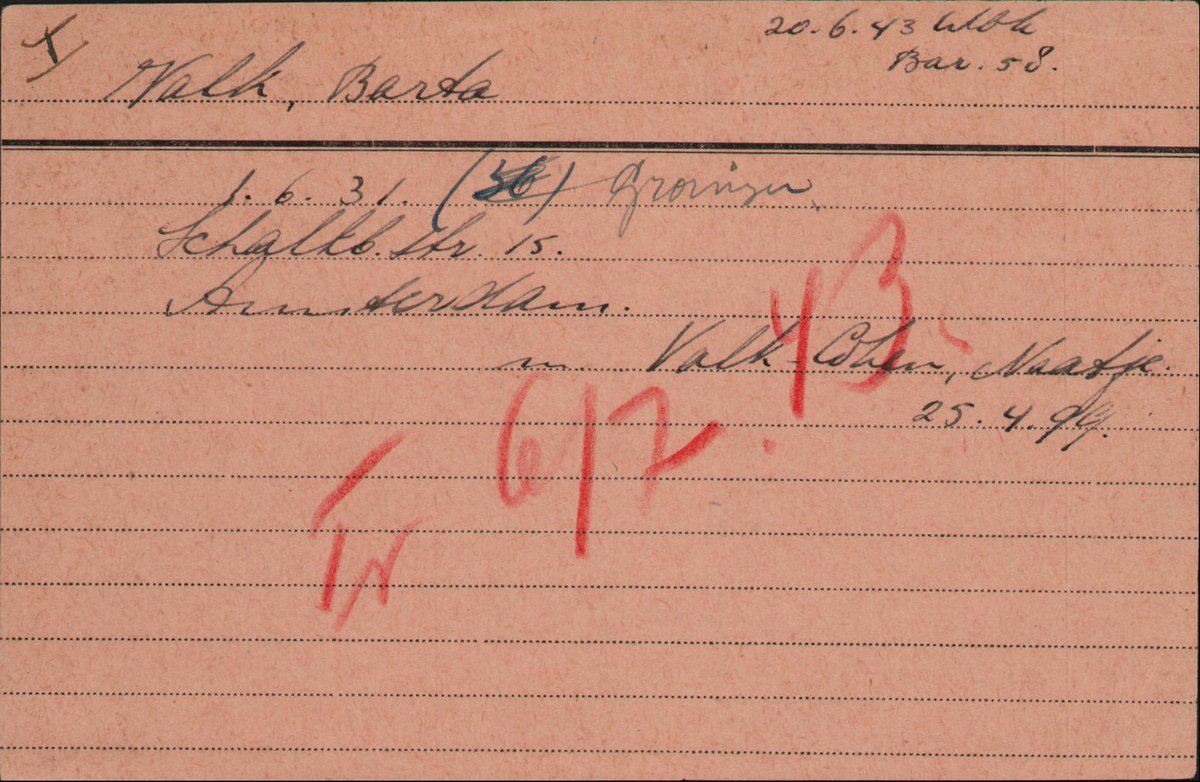 20.6.43 Wbk
Bar. 58.
Valk, Barta
1.6.31. (36) Groningen
Schalkb. str. 15.
Amsterdam.
m. Valk-Cohen, Naatje.
25.4.99.
Tr 6/7.43